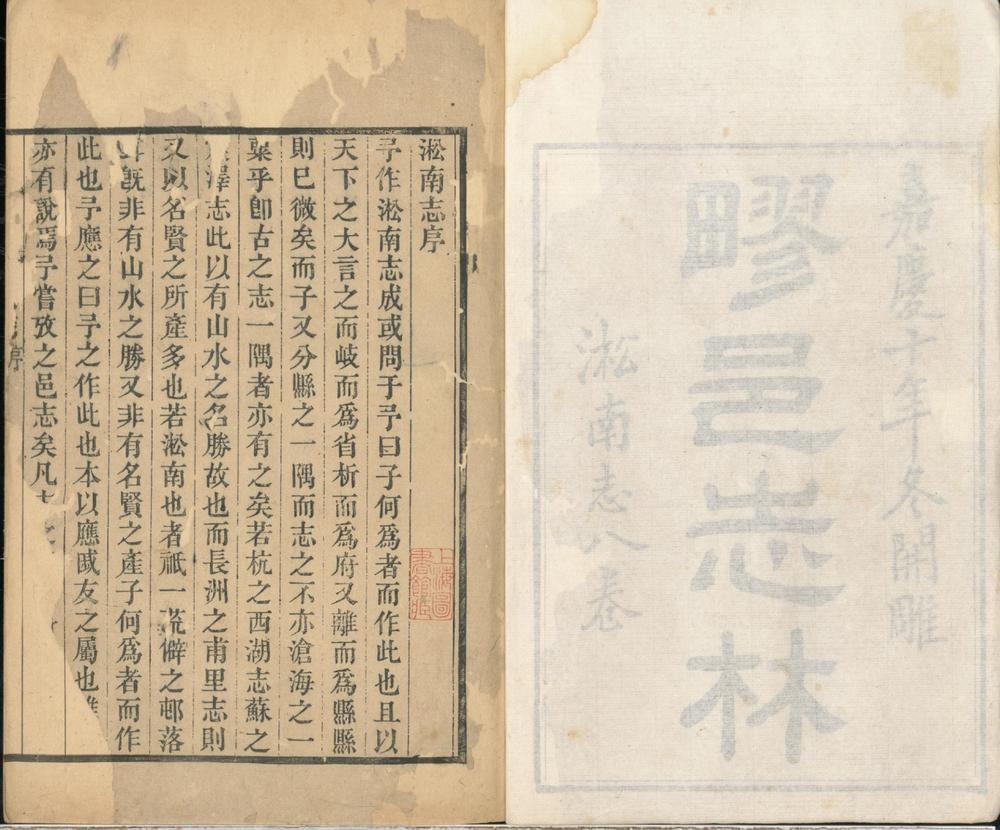 嘉慶十年冬開雕
疁邑志林
淞南志八卷
淞南志序
予作淞南志成或問于予曰子何爲者而作此也且以
天下之大言之而岐而爲省析而爲府又離而爲縣縣
則已微矣而子又分縣之一隅而志之不亦滄海之一
粟乎卽古之志一隅者亦有之矣若杭之西湖志蘇之
澤志此以有山水之名勝故也而長洲之甫里志則
又以名賢之所產多也若淞南也者祇一荒僻之邨落
旣非有山水之勝又非有名賢之產子何爲者而作
此也予應之曰予之作此也本以應戚友之屬也雖
亦有說焉予嘗攷之邑志矣凡
序
上海圖
書館藏